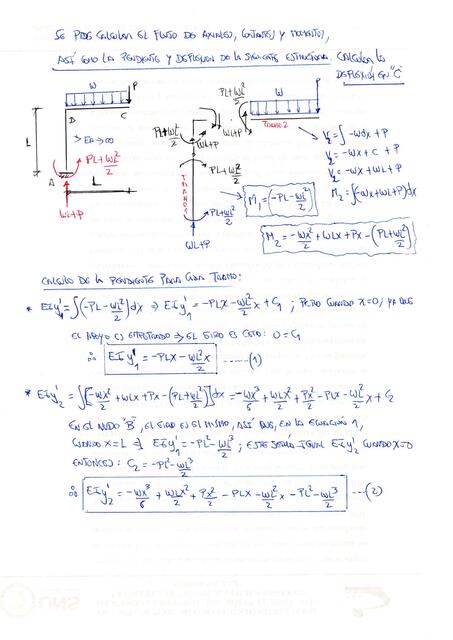 SE PIDE CALCULAR EL FLUJO DE AXIALES, CORTANTES Y MOMENTOS,
ASÍ COMO LA PENDIENTE Y DEFLEXION DE LA SIGUIENTE ESTRUCTURA. CALCULAR LA
DEFLEXIÓN EN "C"
W
P
B
C
L
EA→∞
A
PL+WL²/2
L
WL+P
PL+WL²/2
WL+P
PL+WL²/2
TRAMO 1
PL+WL²/2
WL+P
PL+WL²/2
W
P
WL+P
TRAMO 2
M₁=(-PL-WL²/2)
V₂=∫-Wdx+P
V₂=-Wx+C+P
V₂=-Wx+WL+P
M₂=∫(-Wx+WL+P)dx
M₂=-Wx²/2+WLx+Px-(PL+WL²/2)
CALCULO DE LA PENDIENTE PARA CADA TRAMO:
* EIy₁'=∫(-PL-WL²/2)dx ⇒ EIy₁'=-PLx-WL²/2 x+C₁ ; PERO CUANDO x=0, YA QUE
EL APOYO ES EMPOTRADO ⇒ EL GIRO ES CERO: 0=C₁
∴ EIy₁'=-PLx-WL²/2 x -----(1)
* EIy₂'=∫[-Wx²/2+WLx+Px-(PL+WL²/2)]dx=-Wx³/6+WLx²/2+Px²/2-PLx-WL²/2 x+C₂
EN EL NUDO "B", EL GIRO ES EL MISMO, ASÍ QUE, EN LA ECUACIÓN 1,
CUANDO x=L ⇒ EIy₁'=-PL²-WL³/2 ; ESTE SERÍA IGUAL EIy₂' CUANDO x=0
ENTONCES: C₂=-PL²-WL³/2
∴ EIy₂'=-Wx³/6+WLx²/2+Px²/2-PLx-WL²/2 x-PL²-WL³/2 ---(2)